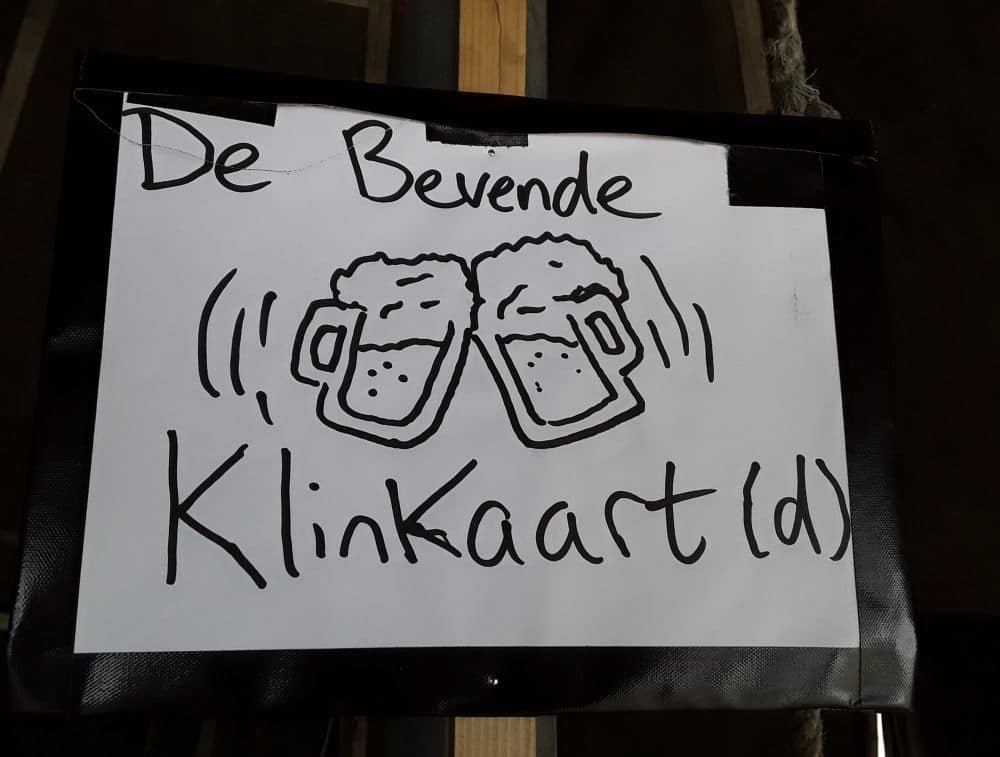 De Bevende
Klinkaart(d)